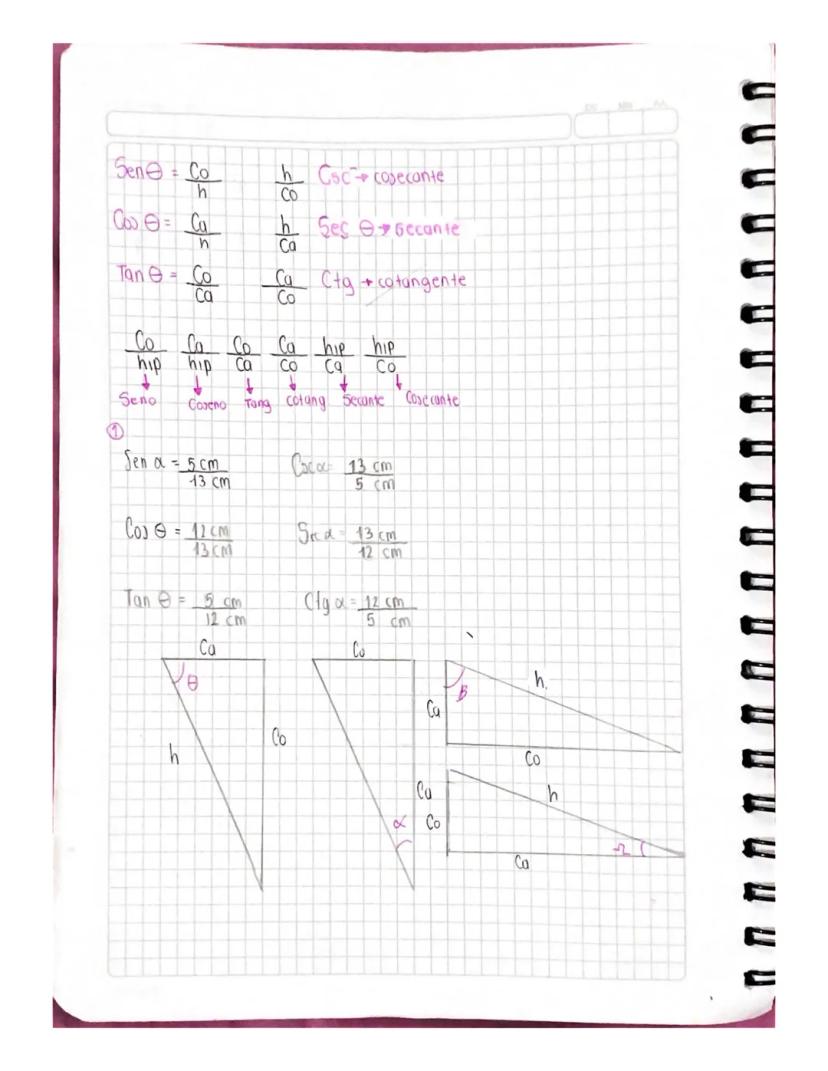 Sen θ = Co/h h/Co Csc → cosecante
Cos θ = Ca/h h/Ca Sec θ → Secante
Tan θ = Co/Ca Ca/Co Ctg → cotangente
Co/hip Ca/hip Co/Ca Ca/Co hip/Ca hip/Co
Seno Coseno Tang cotang Secante Cosecante
1
Sen α = 5 cm/13 cm Csc α = 13 cm/5 cm
Cos θ = 12 cm/13 cm Sec α = 13 cm/12 cm
Tan θ = 5 cm/12 cm Ctg α = 12 cm/5 cm
Ca Co
θ B h.
Ca
h Co Co
Ca h
α Co
Ω
Ca